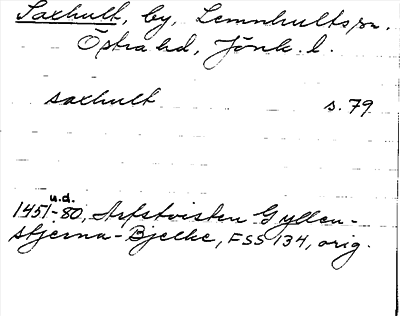 Saxhult, by, Lemnhults sn.
Östra hd, Jönk. l.
saxhult s. 79
u.d.
1451-80, Arfstvisten Gyllen-
stjerna-Bjelke, FSS 134, orig.